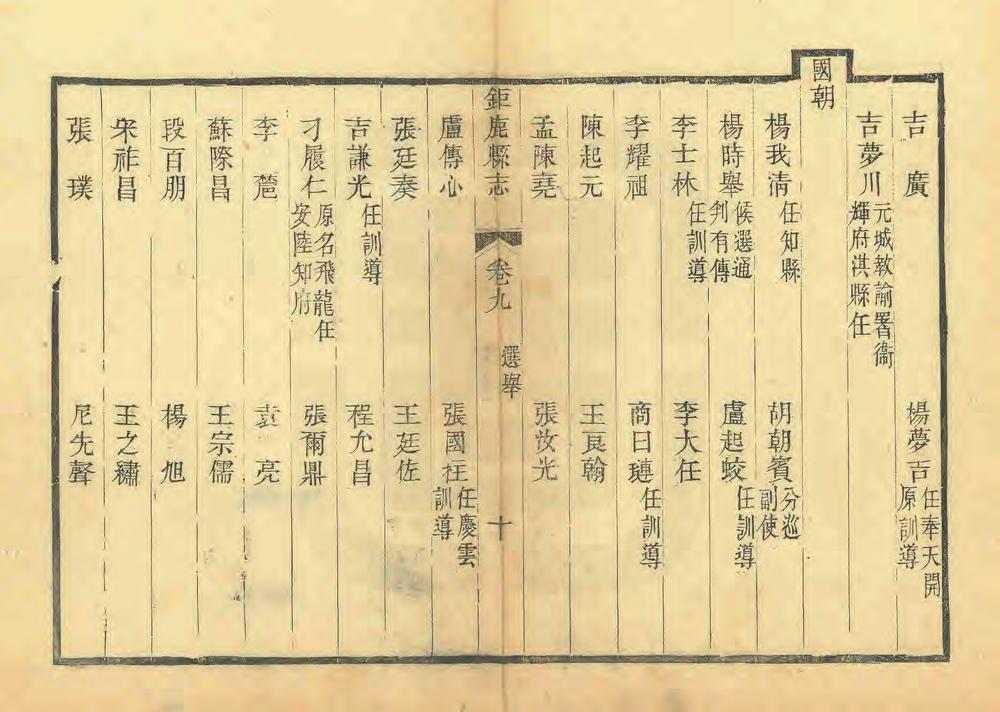 吉廣 楊夢吉任奉天開原訓導
吉夢川元城教諭署衞輝府淇縣任
國朝
楊我清任知縣 胡朝賓分巡副使
楊時舉候選通判有傳 盧起蛟任訓導
李士林任訓導 李大任
李耀祖 商曰璉任訓導
陳起元 王良翰
孟陳堯 張汝光
鉅鹿縣志 卷九 選舉 十
盧傳心 張國柱任慶雲訓導
張廷奏 王廷佐
吉謙光任訓導 程允昌
刁履仁原名飛龍任安陸知府 張爾鼎
李蓖 袁亮
蘇際昌 王宗儒
段百朋 楊旭
宋祚昌 王之繡
張璞 尼先聲